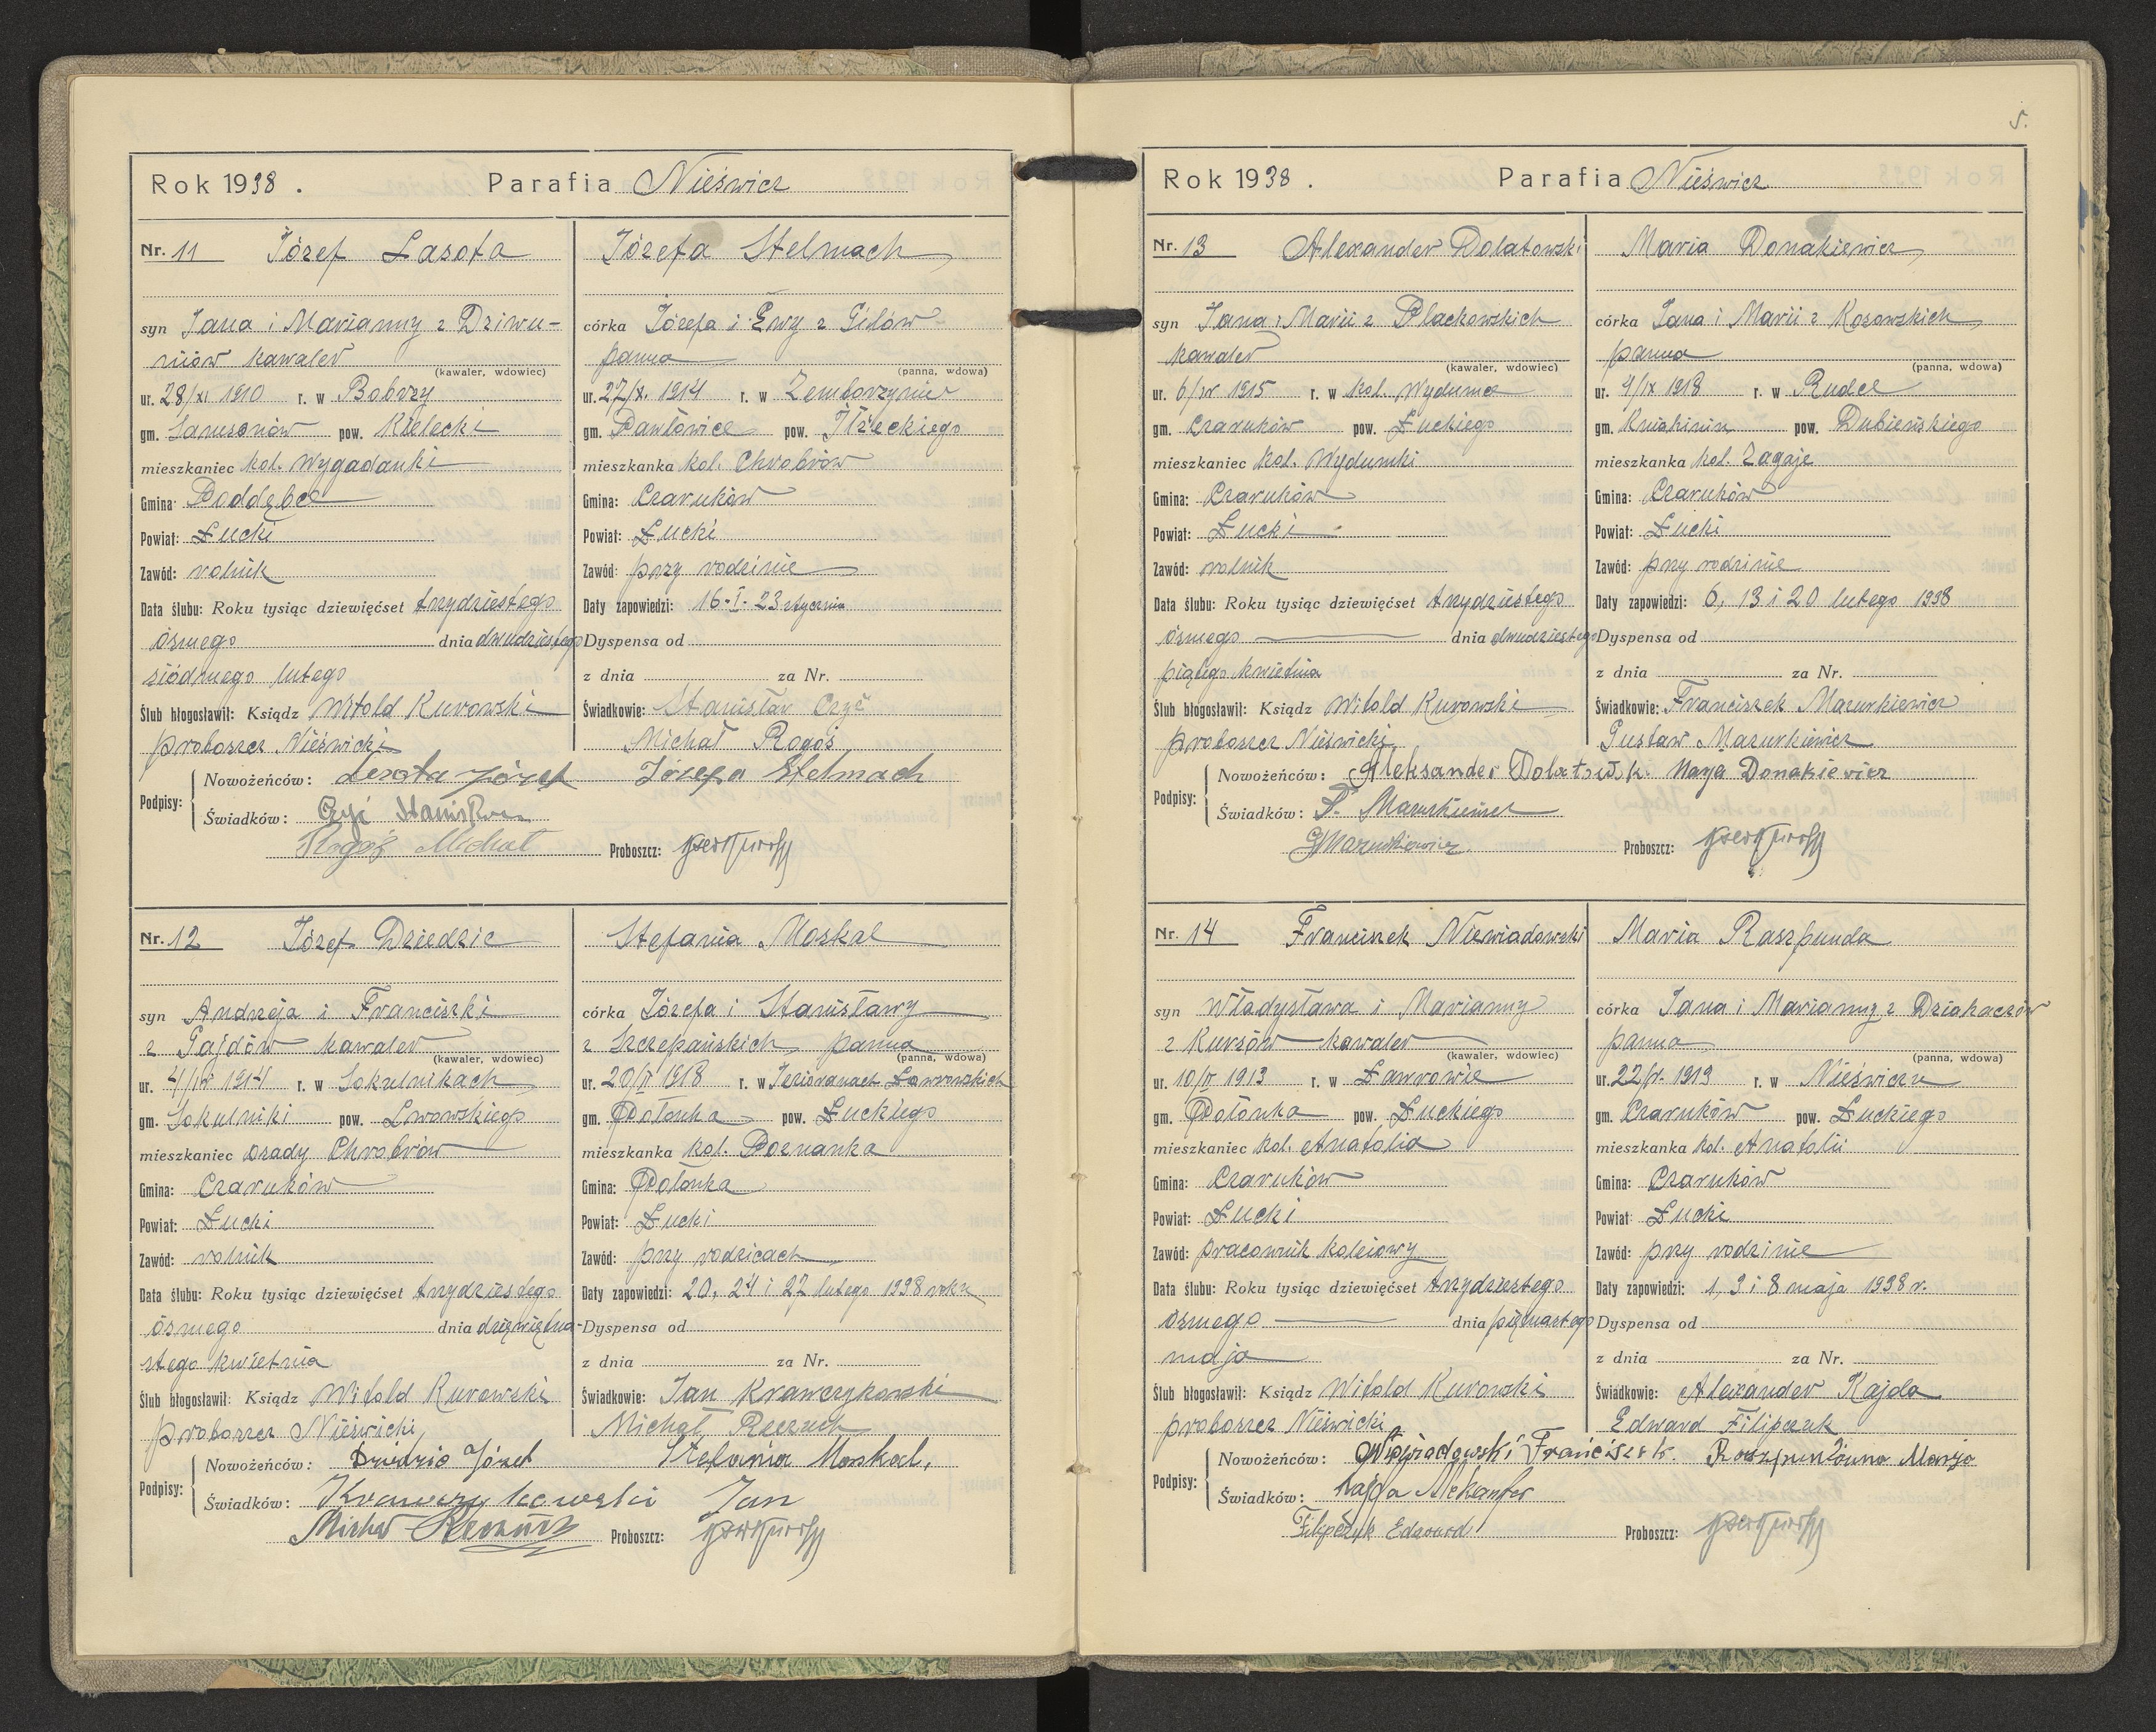 Rok 1938. Parafia Nieświcz
Nr. 11 Józef Lasota
syn Jana i Marianny z Dziwu-
niów kawaler
(kawaler, wdowiec)
ur. 28/XI 1910 r. w Bobrzy
gm. Samsonów pow. Kielecki
mieszkaniec kol. Wygadanki
Gmina: Poddębce
Powiat: Łucki
Zawód: rolnik
Data ślubu: Roku tysiąc dziewięćset trzydziestego
ósmego dnia dwudziestego
siódmego lutego
Ślub błogosławił: Ksiądz Witold Kurowski
proboszcz Nieświcki
Józefa Stelmach
córka Józefa i Ewy z Gidów
panna
(panna, wdowa)
ur. 27/X. 1914 r. w Zemborzynie
gm. Pawłowice pow. Iłżeckiego
mieszkanka kol. Chrobrów
Gmina: Czaruków
Powiat: Łucki
Zawód: przy rodzinie
Daty zapowiedzi: 16-I-23 stycznia
Dyspensa od
z dnia za Nr.
Świadkowie: Stanisław Czyż
Michał Rogoś
Podpisy:
Nowożeńców: Lasota Józef Józefa Stelmach
Świadków: Czyż Stanisław
Rogoś Michał Proboszcz:
Nr. 12 Józef Dziedzic
syn Andrzeja i Franciszki
z Gajdów kawaler
(kawaler, wdowiec)
ur. 4/IV 1914 r. w Sokolnikach
gm. Sokolniki pow. Lwowskiego
mieszkaniec osady Chrobrów
Gmina: Czaruków
Powiat: Łucki
Zawód: rolnik
Data ślubu: Roku tysiąc dziewięćset trzydziestego
ósmego dnia dziewiętna-
stego kwietnia
Ślub błogosławił: Ksiądz Witold Kurowski
proboszcz Nieświcki
Stefania Moskal
córka Józefa i Stanisławy
z Szczepańskich, panna
(panna, wdowa)
ur. 20/II 1918 r. w Jezioranach Ławrowskich
gm. Połonka pow. Łuckiego
mieszkanka kol. Poznanka
Gmina: Połonka
Powiat: Łucki
Zawód: przy rodzicach
Daty zapowiedzi: 20, 24 i 27 lutego 1938 roku
Dyspensa od
z dnia za Nr.
Świadkowie: Jan Krawczykowski
Michał Reczuch
Podpisy:
Nowożeńców: Dziedzic Józef Stefania Moskal,
Świadków: Krawczykowski Jan
Michał Proboszcz:
5.
Rok 1938. Parafia Nieświcz
Nr. 13 Alexander Dolatowski
syn Jana i Marii z Plackowskich
kawaler
(kawaler, wdowiec)
ur. 6/IV 1915 r. w kol. Wydumce
gm. Czaruków pow. Łuckiego
mieszkaniec kol. Wydumki
Gmina: Czaruków
Powiat: Łucki
Zawód: rolnik
Data ślubu: Roku tysiąc dziewięćset trzydziestego
ósmego dnia dwudziestego
piątego kwietnia
Ślub błogosławił: Ksiądz Witold Kurowski
proboszcz Nieświcki
Maria Donakiewicz
córka Jana i Marii z Kozowskich
panna
(panna, wdowa)
ur. 4/IX 1918 r. w Rudce
gm. Kniahinin pow. Dubieńskiego
mieszkanka kol. Zagaje
Gmina: Czaruków
Powiat: Łucki
Zawód: przy rodzinie
Daty zapowiedzi: 6, 13 i 20 lutego 1938
Dyspensa od
z dnia za Nr.
Świadkowie: Franciszek Mazurkiewicz
Gustaw Mazurkiewicz
Podpisy:
Nowożeńców: Aleksander Marja Donakiewicz
Świadków: F. Mazurkiewicz
GMazurkiewicz Proboszcz:
Nr. 14 Franciszek Niewiadowski
syn Władysława i Marianny
z Kurzów kawaler
(kawaler, wdowiec)
ur. 10/II 1913 r. w Ławrowie
gm. Połonka pow. Łuckiego
mieszkaniec kol. Anatolia
Gmina: Czaruków
Powiat: Łucki
Zawód: pracownik kolejowy
Data ślubu: Roku tysiąc dziewięćset trzydziestego
ósmego dnia piętnastego
maja
Ślub błogosławił: Ksiądz Witold Kurowski
proboszcz Nieświcki
Maria Raszpunda
córka Jana i Marianny z Dziakaczów
panna
(panna, wdowa)
ur. 22/V. 1919 r. w Nieświczu
gm. Czaruków pow. Łuckiego
mieszkanka kol. Anatolii
Gmina: Czaruków
Powiat: Łucki
Zawód: przy rodzinie
Daty zapowiedzi: 1, 3 i 8 maja 1938 r.
Dyspensa od
z dnia za Nr.
Świadkowie: Alexander Kajda
Edward Filipczuk
Podpisy:
Nowożeńców: Niewiadowski Franciszek. Marja
Świadków: Kajda Aleksander
Filipczuk Edward Proboszcz: